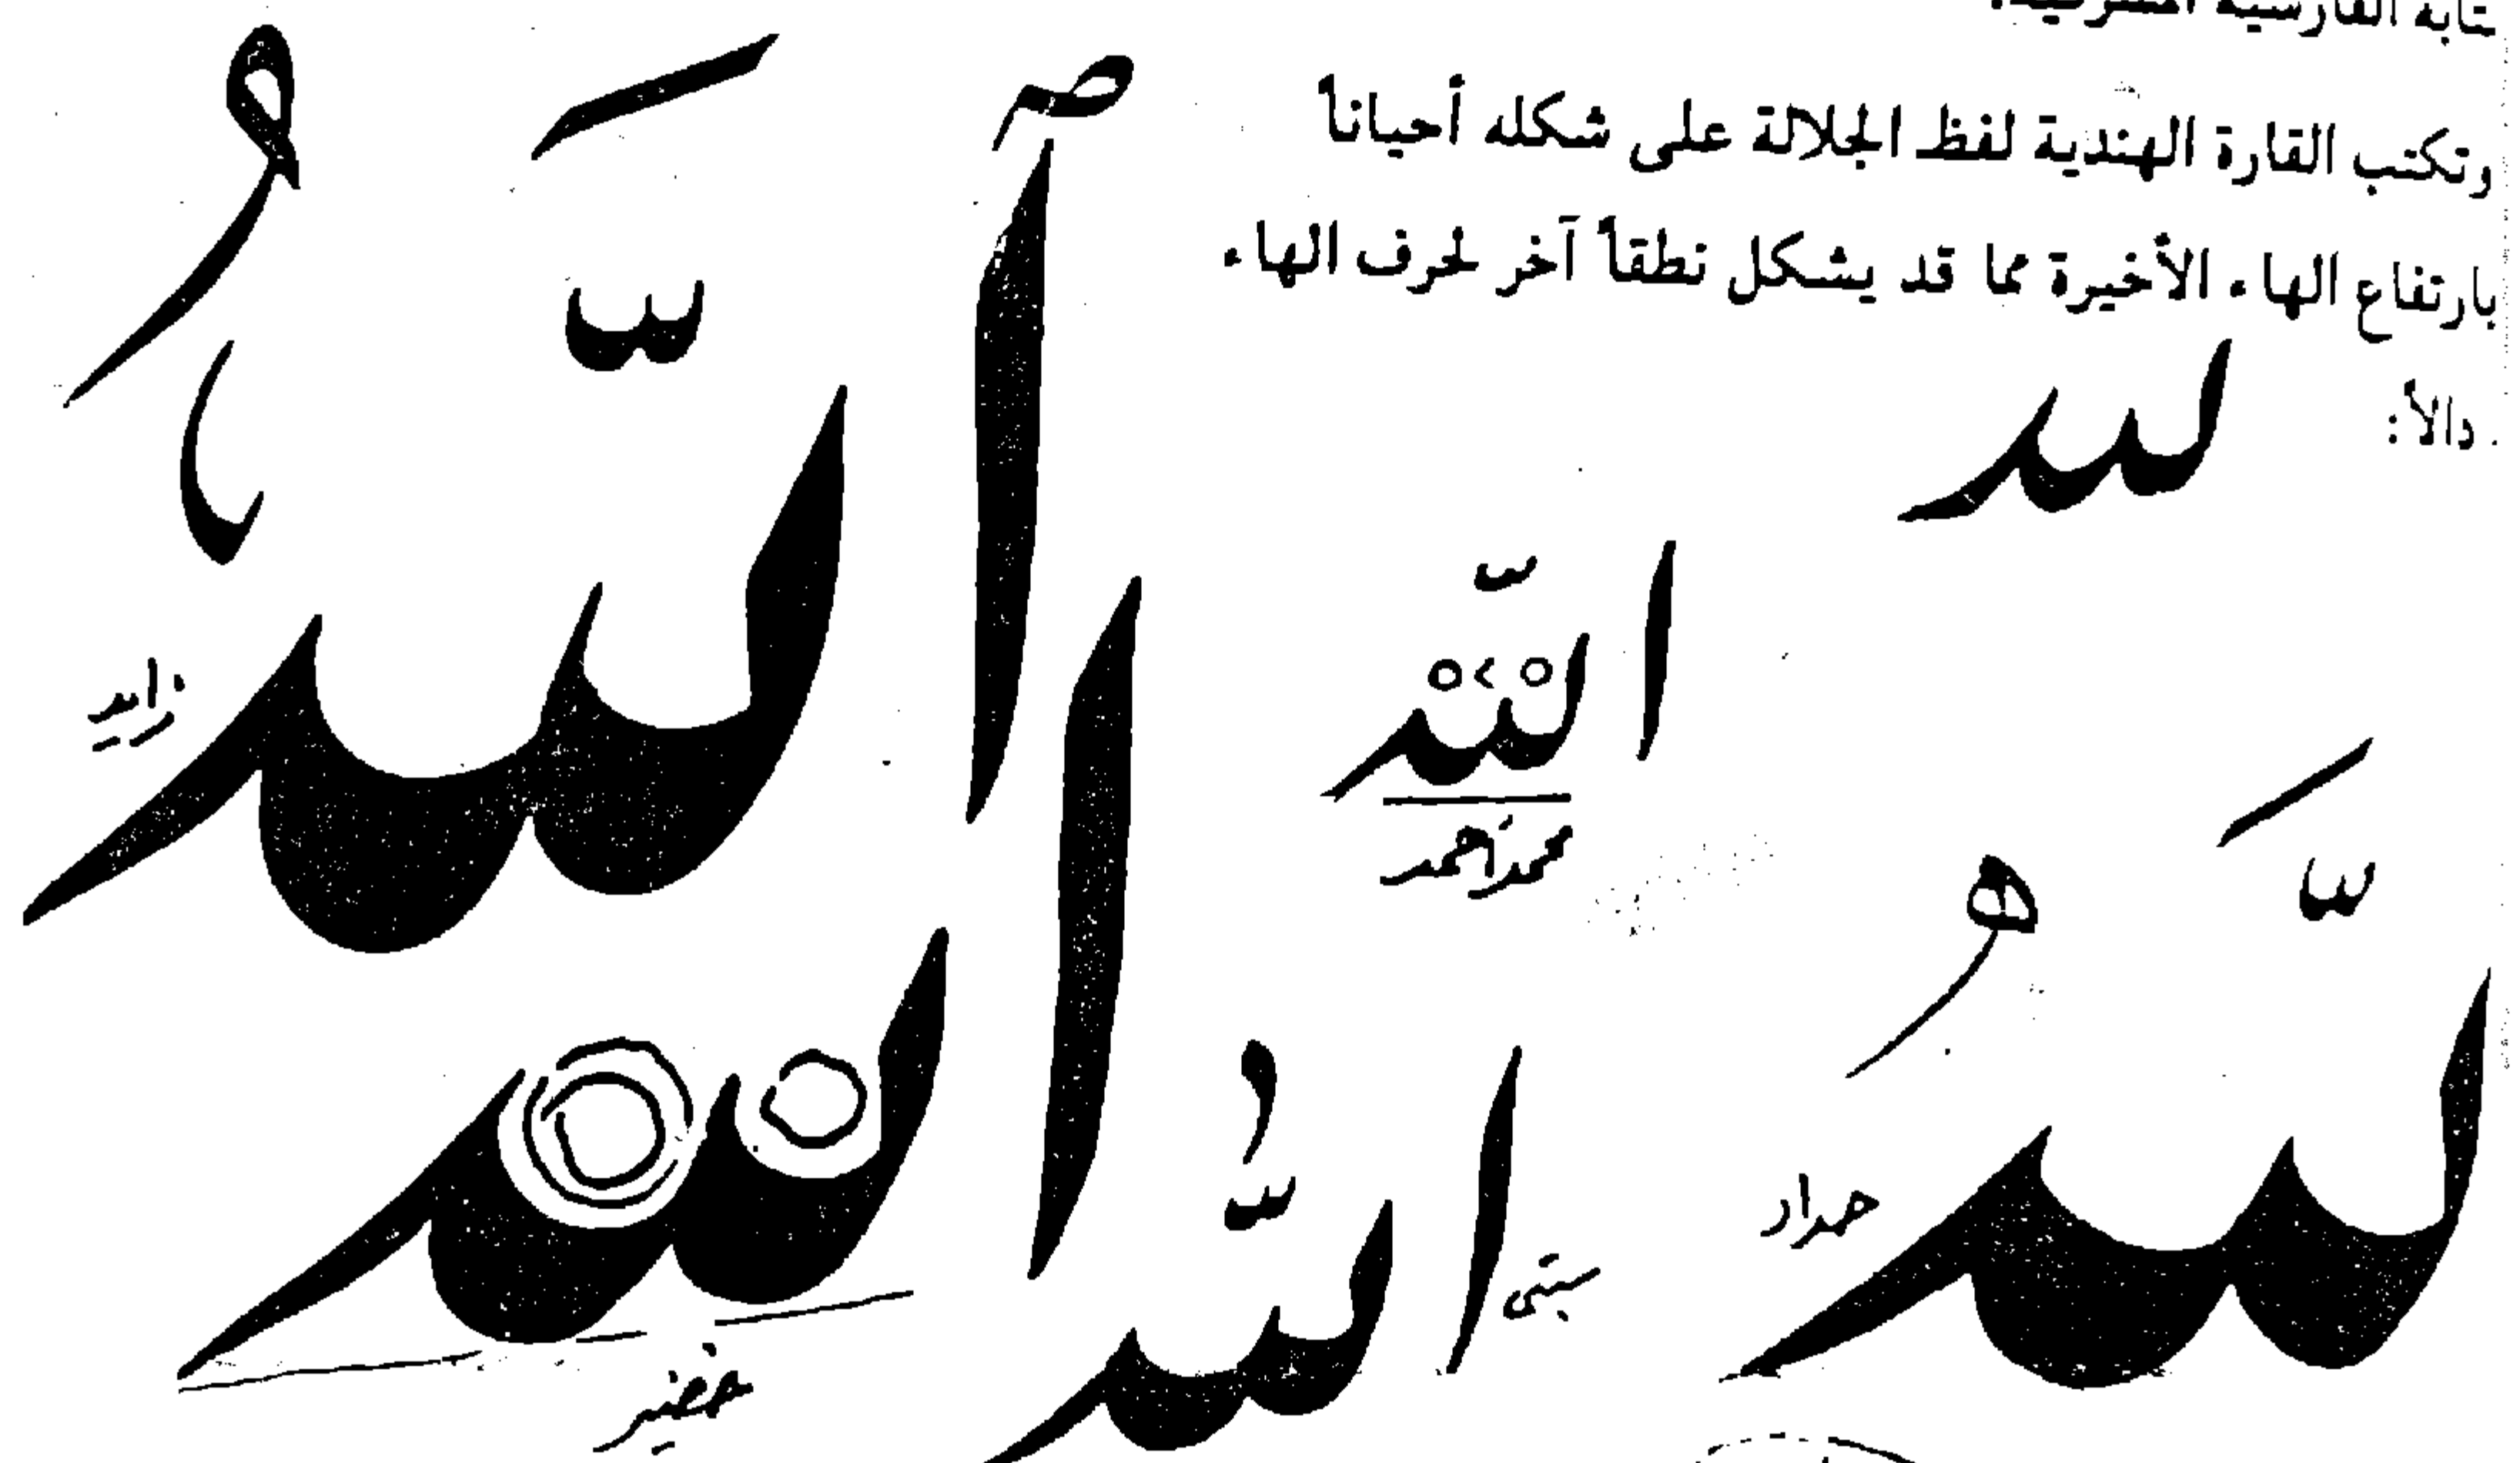 وتكتب القارة الهندية لفظ الجلالة على شكله أحياناً
بارتفاع الهاء الأخيرة مما قد يشكل نطقاً آخر لحرف الهاء
دالاً:
لله
الله
محمد أحمد
اللهُ
زايد
لله
حداد
الله
خضير
اللهُ